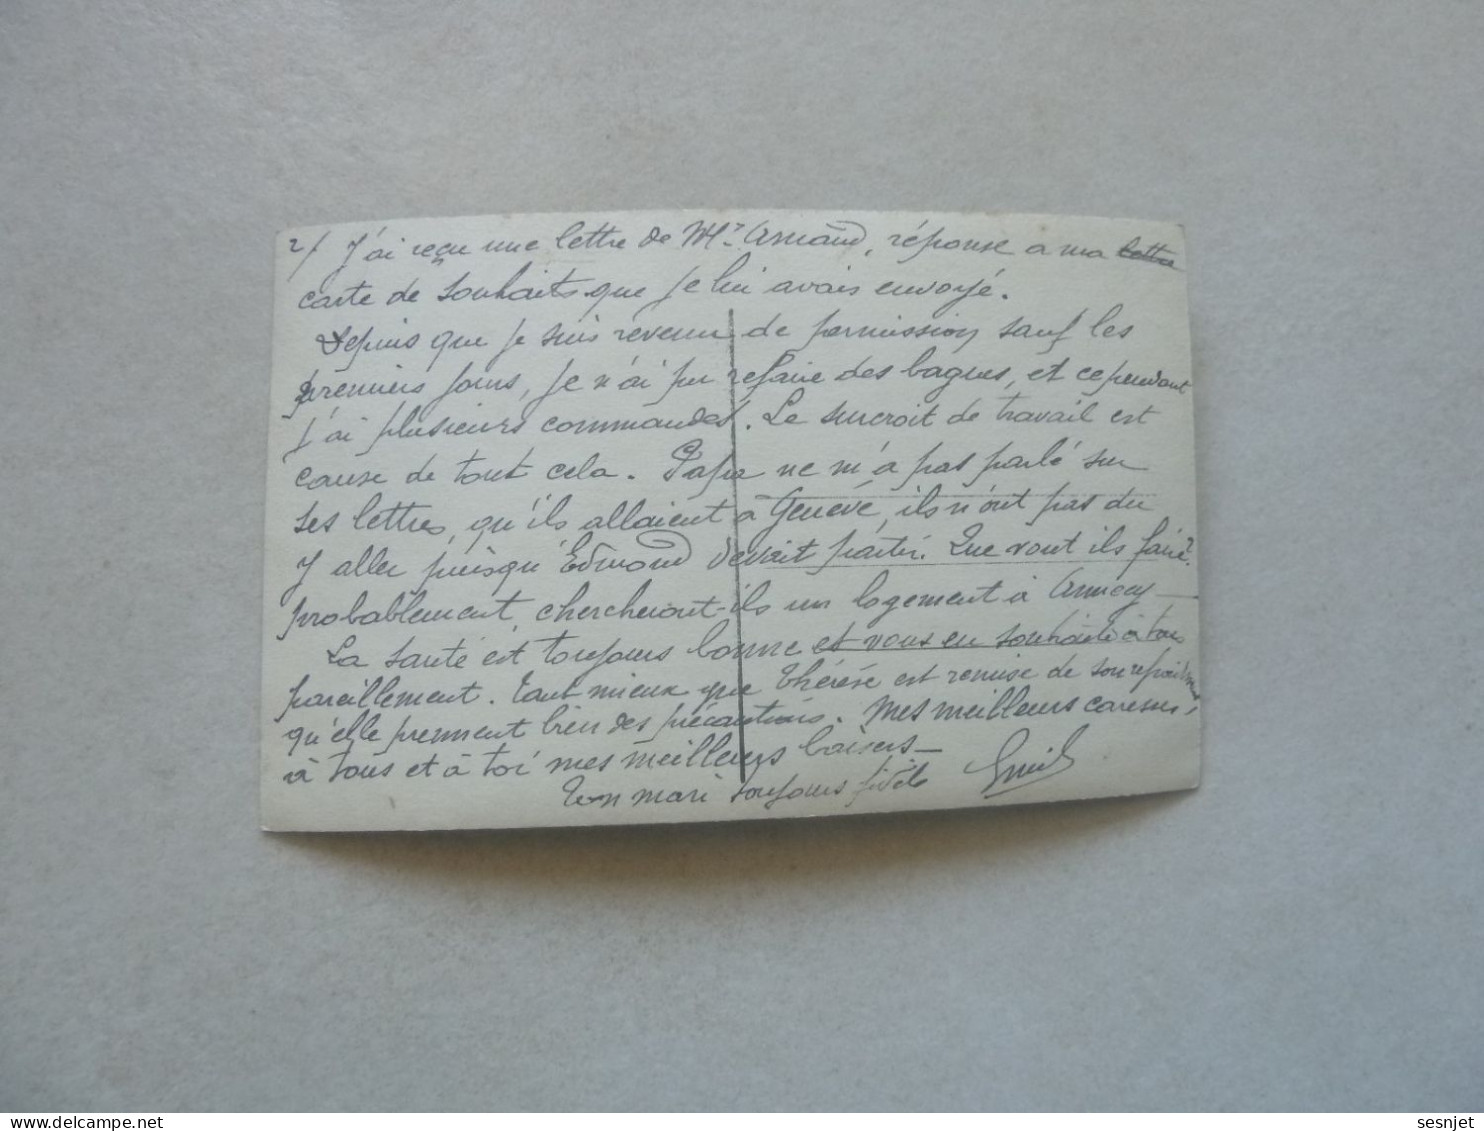 2/ J'ai reçu une lettre de Mr Armand, réponse a ma lettre
carte de souhaits que je lui avais envoyé.
Depuis que je suis revenu de permission sauf les
premiers jours, je n'ai pu refaire des bagues, et cependant
j'ai plusieurs commandes. Le surcroit de travail est
cause de tout cela. Papa ne m'a pas parlé sur
ses lettres, qu'ils allaient à Genève, ils n'ont pas du
y aller puisqu'Edmond devait partir. Que vont ils faire?
probablement, chercheront-ils un logement à Annecy —
La santé est toujours bonne et vous en souhaite à tous
pareillement. Tant mieux que Thérèse est remise de son
qu'elle prennent bien des précautions. Mes meilleurs caresses,
à tous et à toi mes meilleurs baisers —
Ton mari toujours fidèle
sesnjet